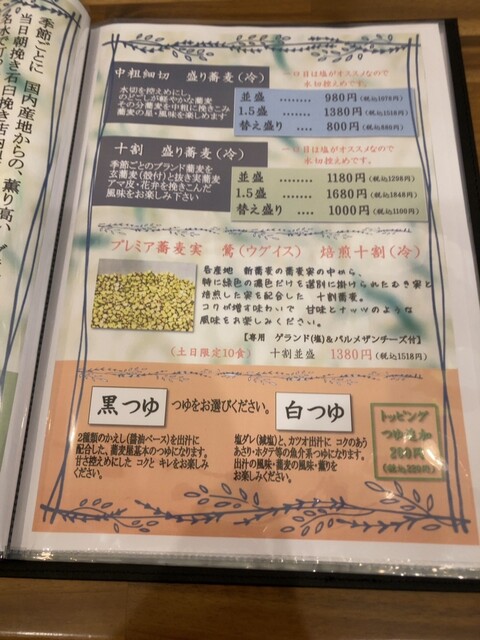 季節ごとに 国内産地からの、薫り高い
当日朝挽き石臼挽き
中粗細切 盛り蕎麦(冷)
水切を控えめにし、
のどごしが軽やかな蕎麦
その分蕎麦を中粗に挽きこみ
蕎麦の星・風味を楽しめます
一口目は塩がオススメなので
水切控えめです。
並盛 ........ 980円(税込1078円)
1.5盛 ........ 1380円(税込1518円)
替え盛り ..... 800円(税込880円)
十割 盛り蕎麦(冷)
季節ごとのブランド蕎麦を
玄蕎麦(殻付)と抜き実蕎麦
アマ皮・花弁を挽きこんだ
風味をお楽しみ下さい
一口目は塩がオススメなので
水切控えめです。
並盛 ........ 1180円(税込1298円)
1.5盛 ........ 1680円(税込1848円)
替え盛り .... 1000円(税込1100円)
プレミア蕎麦実 鶯(ウグイス) 焙煎十割(冷)
各産地 新蕎麦の蕎麦実の中から、
特に緑色の濃色だけを選別に掛けられたむき実と
焙煎した実を配合した 十割蕎麦。
コクが増す味わいで 甘味とナッツのような
風味をお楽しみください。
【専用 ゲランド(塩)&パルメザンチーズ付】
(土日限定10食) 十割並盛 1380円(税込1518円)
黒つゆ つゆをお選びください。 白つゆ
2種類のかえし(醤油ベース)を出汁に
配合した、蕎麦屋基本のつゆになります。
甘さ控えめにした コクと キレをお楽しみ
ください。
塩ダレ(減塩)と、カツオ出汁に コクのあう
あさり・ホタテ等の魚介系つゆになります。
出汁の風味・蕎麦の風味・薫りを
お楽しみください。
トッピング
つゆ追加
200円
(税込220円)